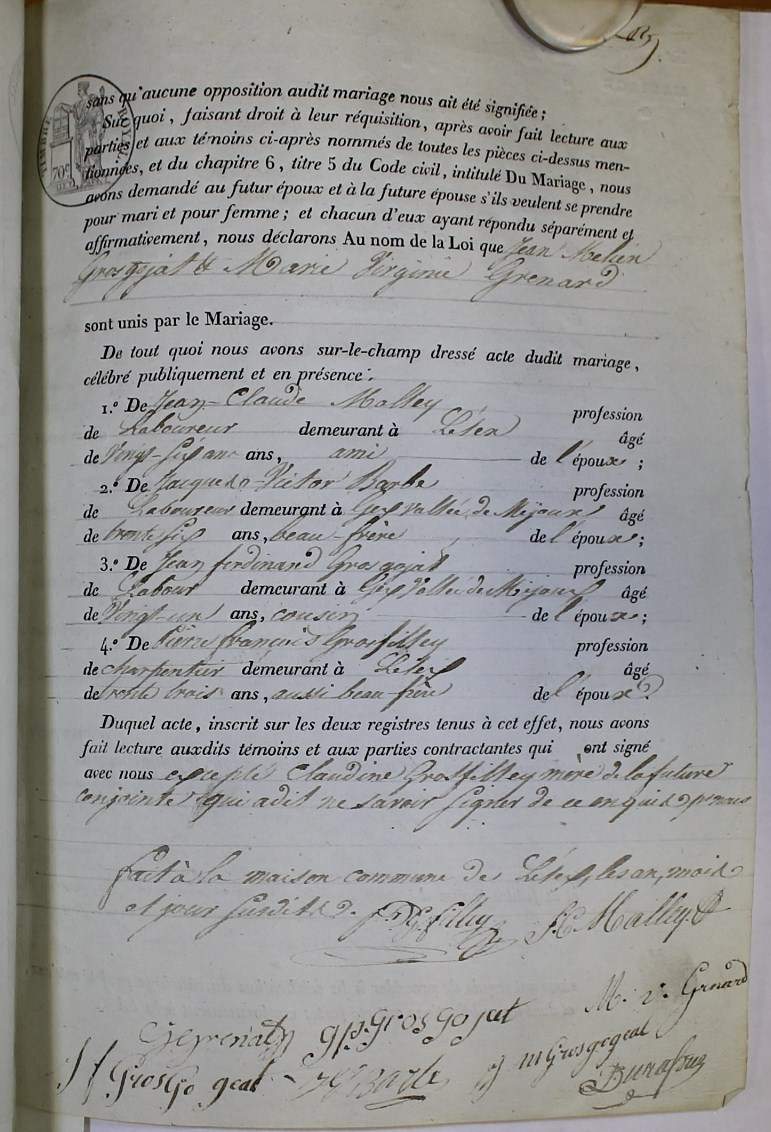 sans qu'aucune opposition audit mariage nous ait été signifiée ;
Sur quoi, faisant droit à leur réquisition, après avoir fait lecture aux
parties et aux témoins ci-après nommés de toutes les pièces ci-dessus men-
tionnées, et du chapitre 6, titre 5 du Code civil, intitulé Du Mariage, nous
avons demandé au futur époux et à la future épouse s'ils veulent se prendre
pour mari et pour femme ; et chacun d'eux ayant répondu séparément et
affirmativement, nous déclarons Au nom de la Loi que Jean Melien
Grosgojat & Marie Virginie Grenard
sont unis par le Mariage.
De tout quoi nous avons sur-le-champ dressé acte dudit mariage,
célébré publiquement et en présence :
1.º De Jean-Claude Molley profession
de Laboureur demeurant à Lélex âgé
de Vingt-six ans ans, ami de l'époux ;
2.º De Jacques Victor Barbe profession
de Laboureur demeurant à Gex Vallée de Mijoux âgé
de trente six ans, beau-frère de l'époux ;
3.º De Jean ferdinand Grosgojat profession
de Labour demeurant à Gex Vallée de Mijoux âgé
de Vingt-un ans, cousin de l'époux ;
4.º De Pierre françois Grosfilley profession
de charpentier demeurant à Lélex âgé
de trente trois ans, aussi beau-frère de l'époux.
Duquel acte, inscrit sur les deux registres tenus à cet effet, nous avons
fait lecture auxdits témoins et aux parties contractantes qui ont signé
avec nous excepté Claudine Grosfilley mère de la future
conjointe qui a dit ne savoir signer de ce enquise
fait à la maison commune de Lélex, les an, mois
et jour susdits filley J.C Malley
M. v. Grenard
gjp Grosgojat
Jf GrosGogeat Barbe jm Grosgogeat
Durafour
70c